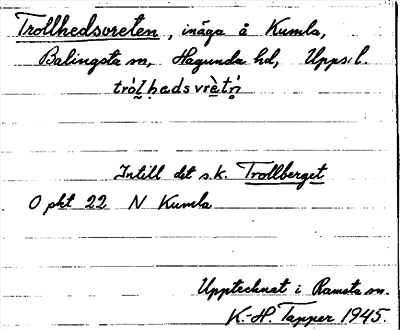 Trollhedsvreten, inäga å Kumla,
Balingsta sn, Hagunda hd, Upps. l.
Intill det s.k. Trollberget
O pkt 22 N Kumla
Upptecknat i Ramsta sn.
K.-H. Tapper 1945.